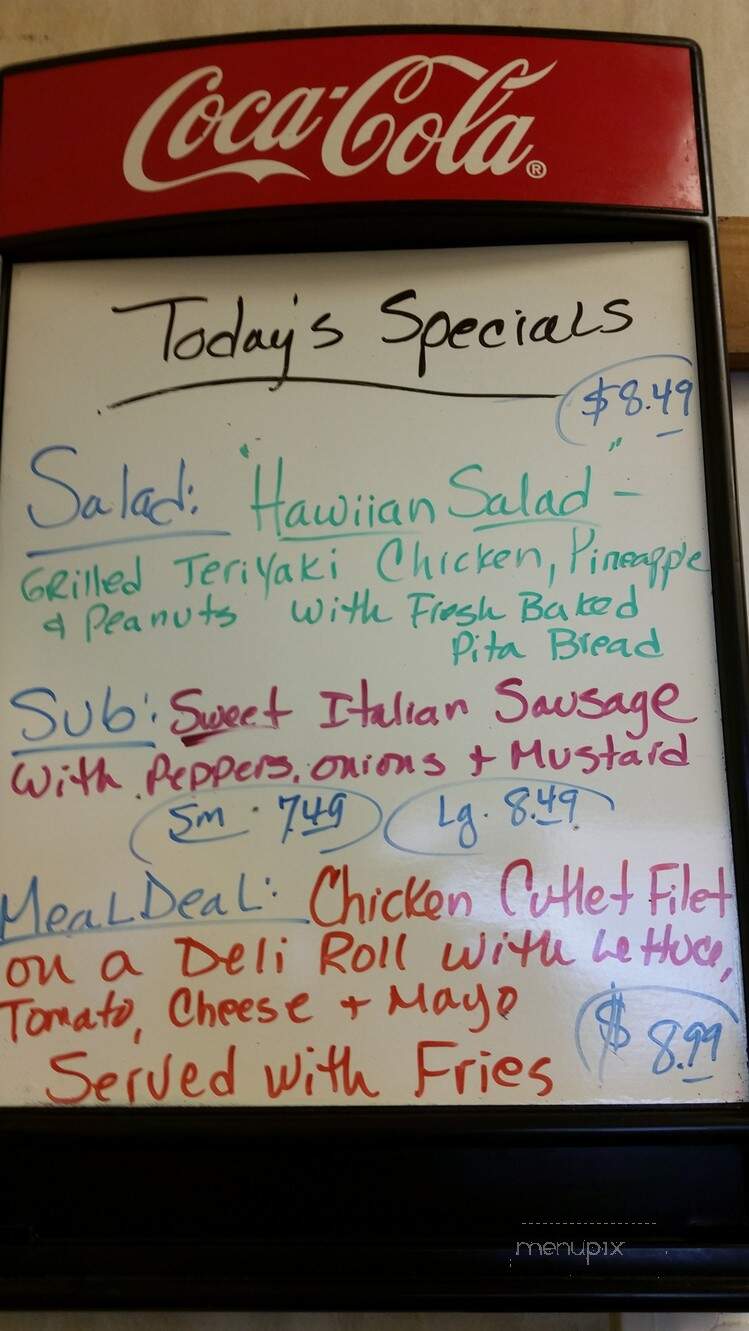 Coca-Cola®
Today's Specials
$8.49
Salad: "Hawiian Salad" -
Grilled Teriyaki Chicken, Pineapple
& Peanuts with Fresh Baked
Pita Bread
Sub: Sweet Italian Sausage
with Peppers, onions + Mustard
Sm. 7.49 Lg. 8.49
Meal Deal: Chicken Cutlet Filet
on a Deli Roll with Lettuce,
Tomato, Cheese + Mayo
$8.99
Served with Fries
menupix